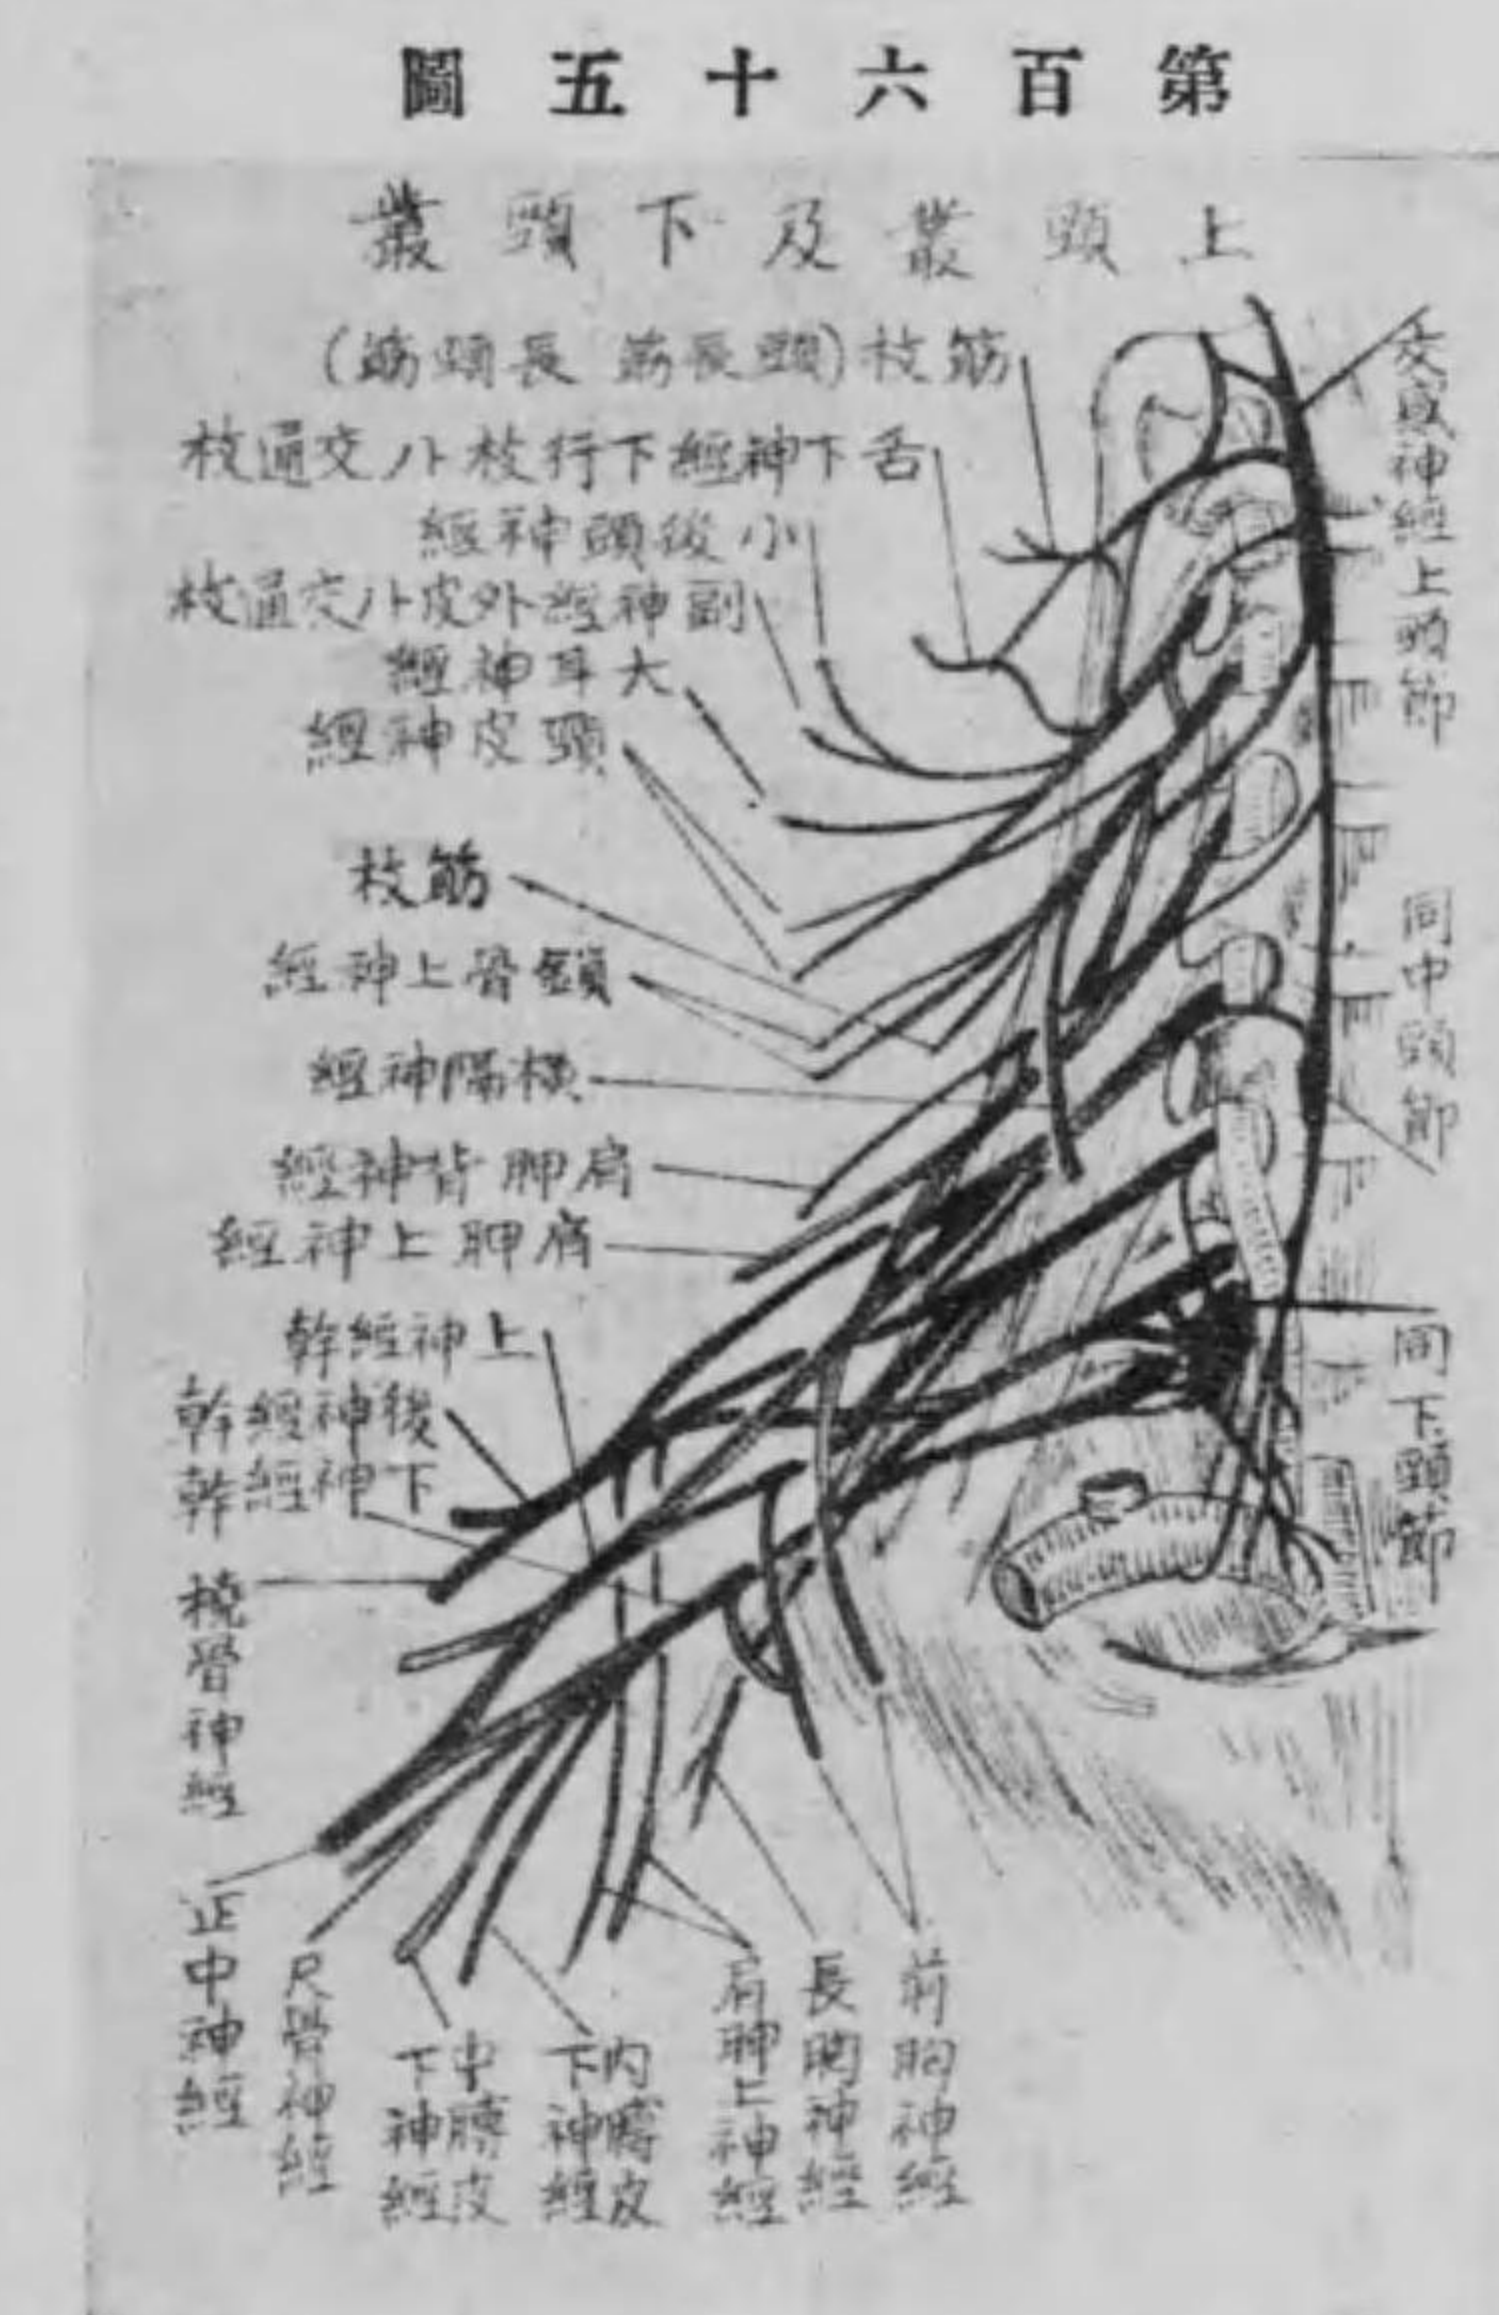 第百六十五圖
上頸叢及下頸叢
筋枝(頭長筋 長頸筋)
舌下神經下行枝ハ交通枝
小後頭神經
副神經外皮ハ交通枝
大耳神經
頸皮神經
筋枝
鎖骨上神經
橫隔神經
肩胛背神經
肩胛上神經
上神經幹
後神經幹
下神經幹
橈骨神經
正中神經
尺骨神經
中膊皮下神經
內膊皮下神經
肩胛上神經
長胸神經
前胸神經
交感神經上頸節
同中頸節
同下頸節